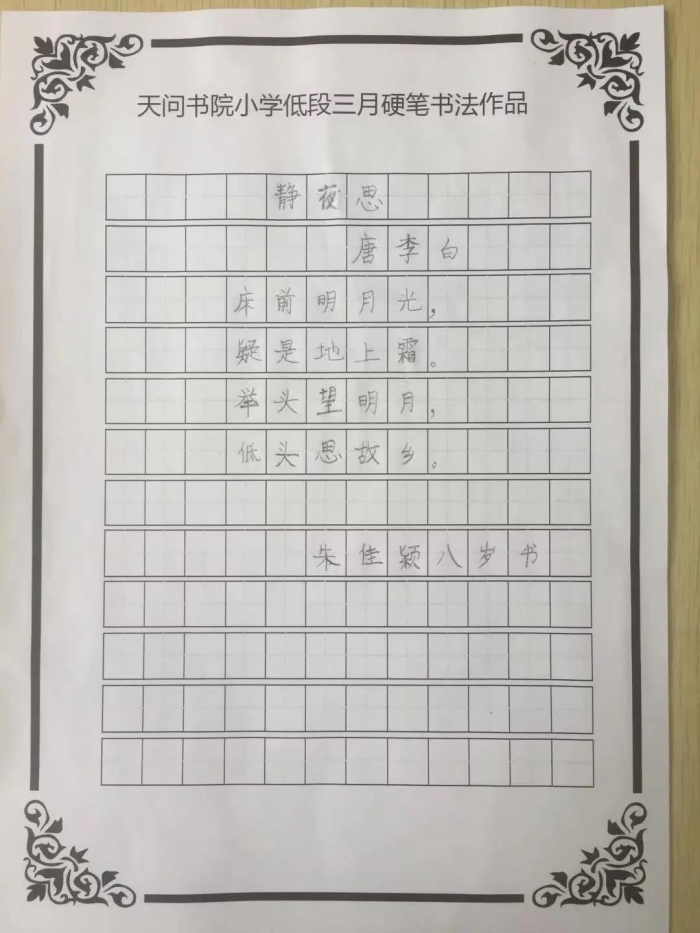 天问书院小学低段三月硬笔书法作品
静夜思
唐李白
床前明月光，
疑是地上霜。
举头望明月，
低头思故乡。
朱佳颖八岁书